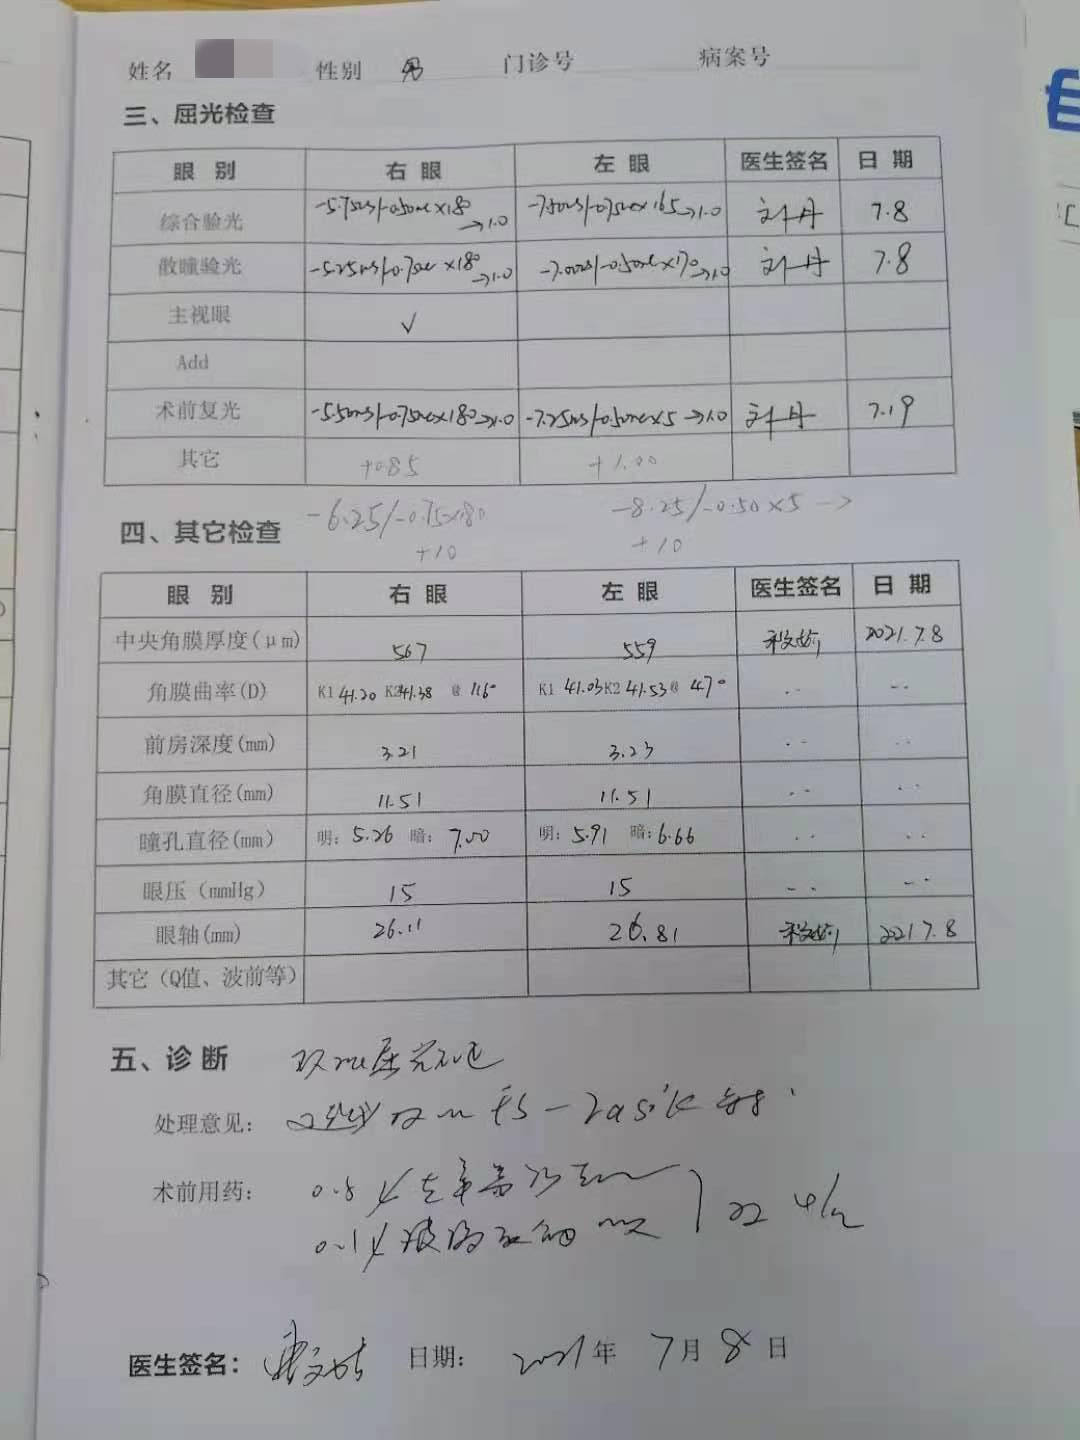 姓名 性别 男 门诊号 病案号
三、屈光检查
眼 别 右 眼 左 眼 医生签名 日 期
综合验光 -5.75DS/-0.50DC×180→1.0 -7.50DS/-0.75DC×165→1.0 刘丹 7.8
散瞳验光 -5.25DS/-0.75DC×180→1.0 -7.00DS/-0.50DC×170→1.0 刘丹 7.8
主视眼 √
Add
术前复光 -5.50DS/-0.75DC×180→1.0 -7.25DS/-0.50DC×5→1.0 刘丹 7.19
其它 +0.85 +1.00
-6.25/-0.75×180 -8.25/-0.50×5→
四、其它检查 +10 +10
眼 别 右 眼 左 眼 医生签名 日 期
中央角膜厚度(μm) 567 559 2021.7.8
角膜曲率(D) K1 41.20 K2 41.38 @ 116° K1 41.03 K2 41.53 @ 47°
前房深度(mm) 3.21 3.23
角膜直径(mm) 11.51 11.51
瞳孔直径(mm) 明: 5.26 暗: 7.00 明: 5.91 暗: 6.66
眼压（mmHg） 15 15
眼轴(mm) 26.11 26.81 2021 7.8
其它（Q值、波前等）
五、诊断 双眼屈光不正
处理意见: 双眼 FS-Lasik
术前用药:
0.1%
医生签名: 日期: 2021年 7月 8日